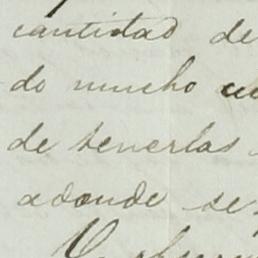 cantidad de
do mucho
de tenerlas
adonde se